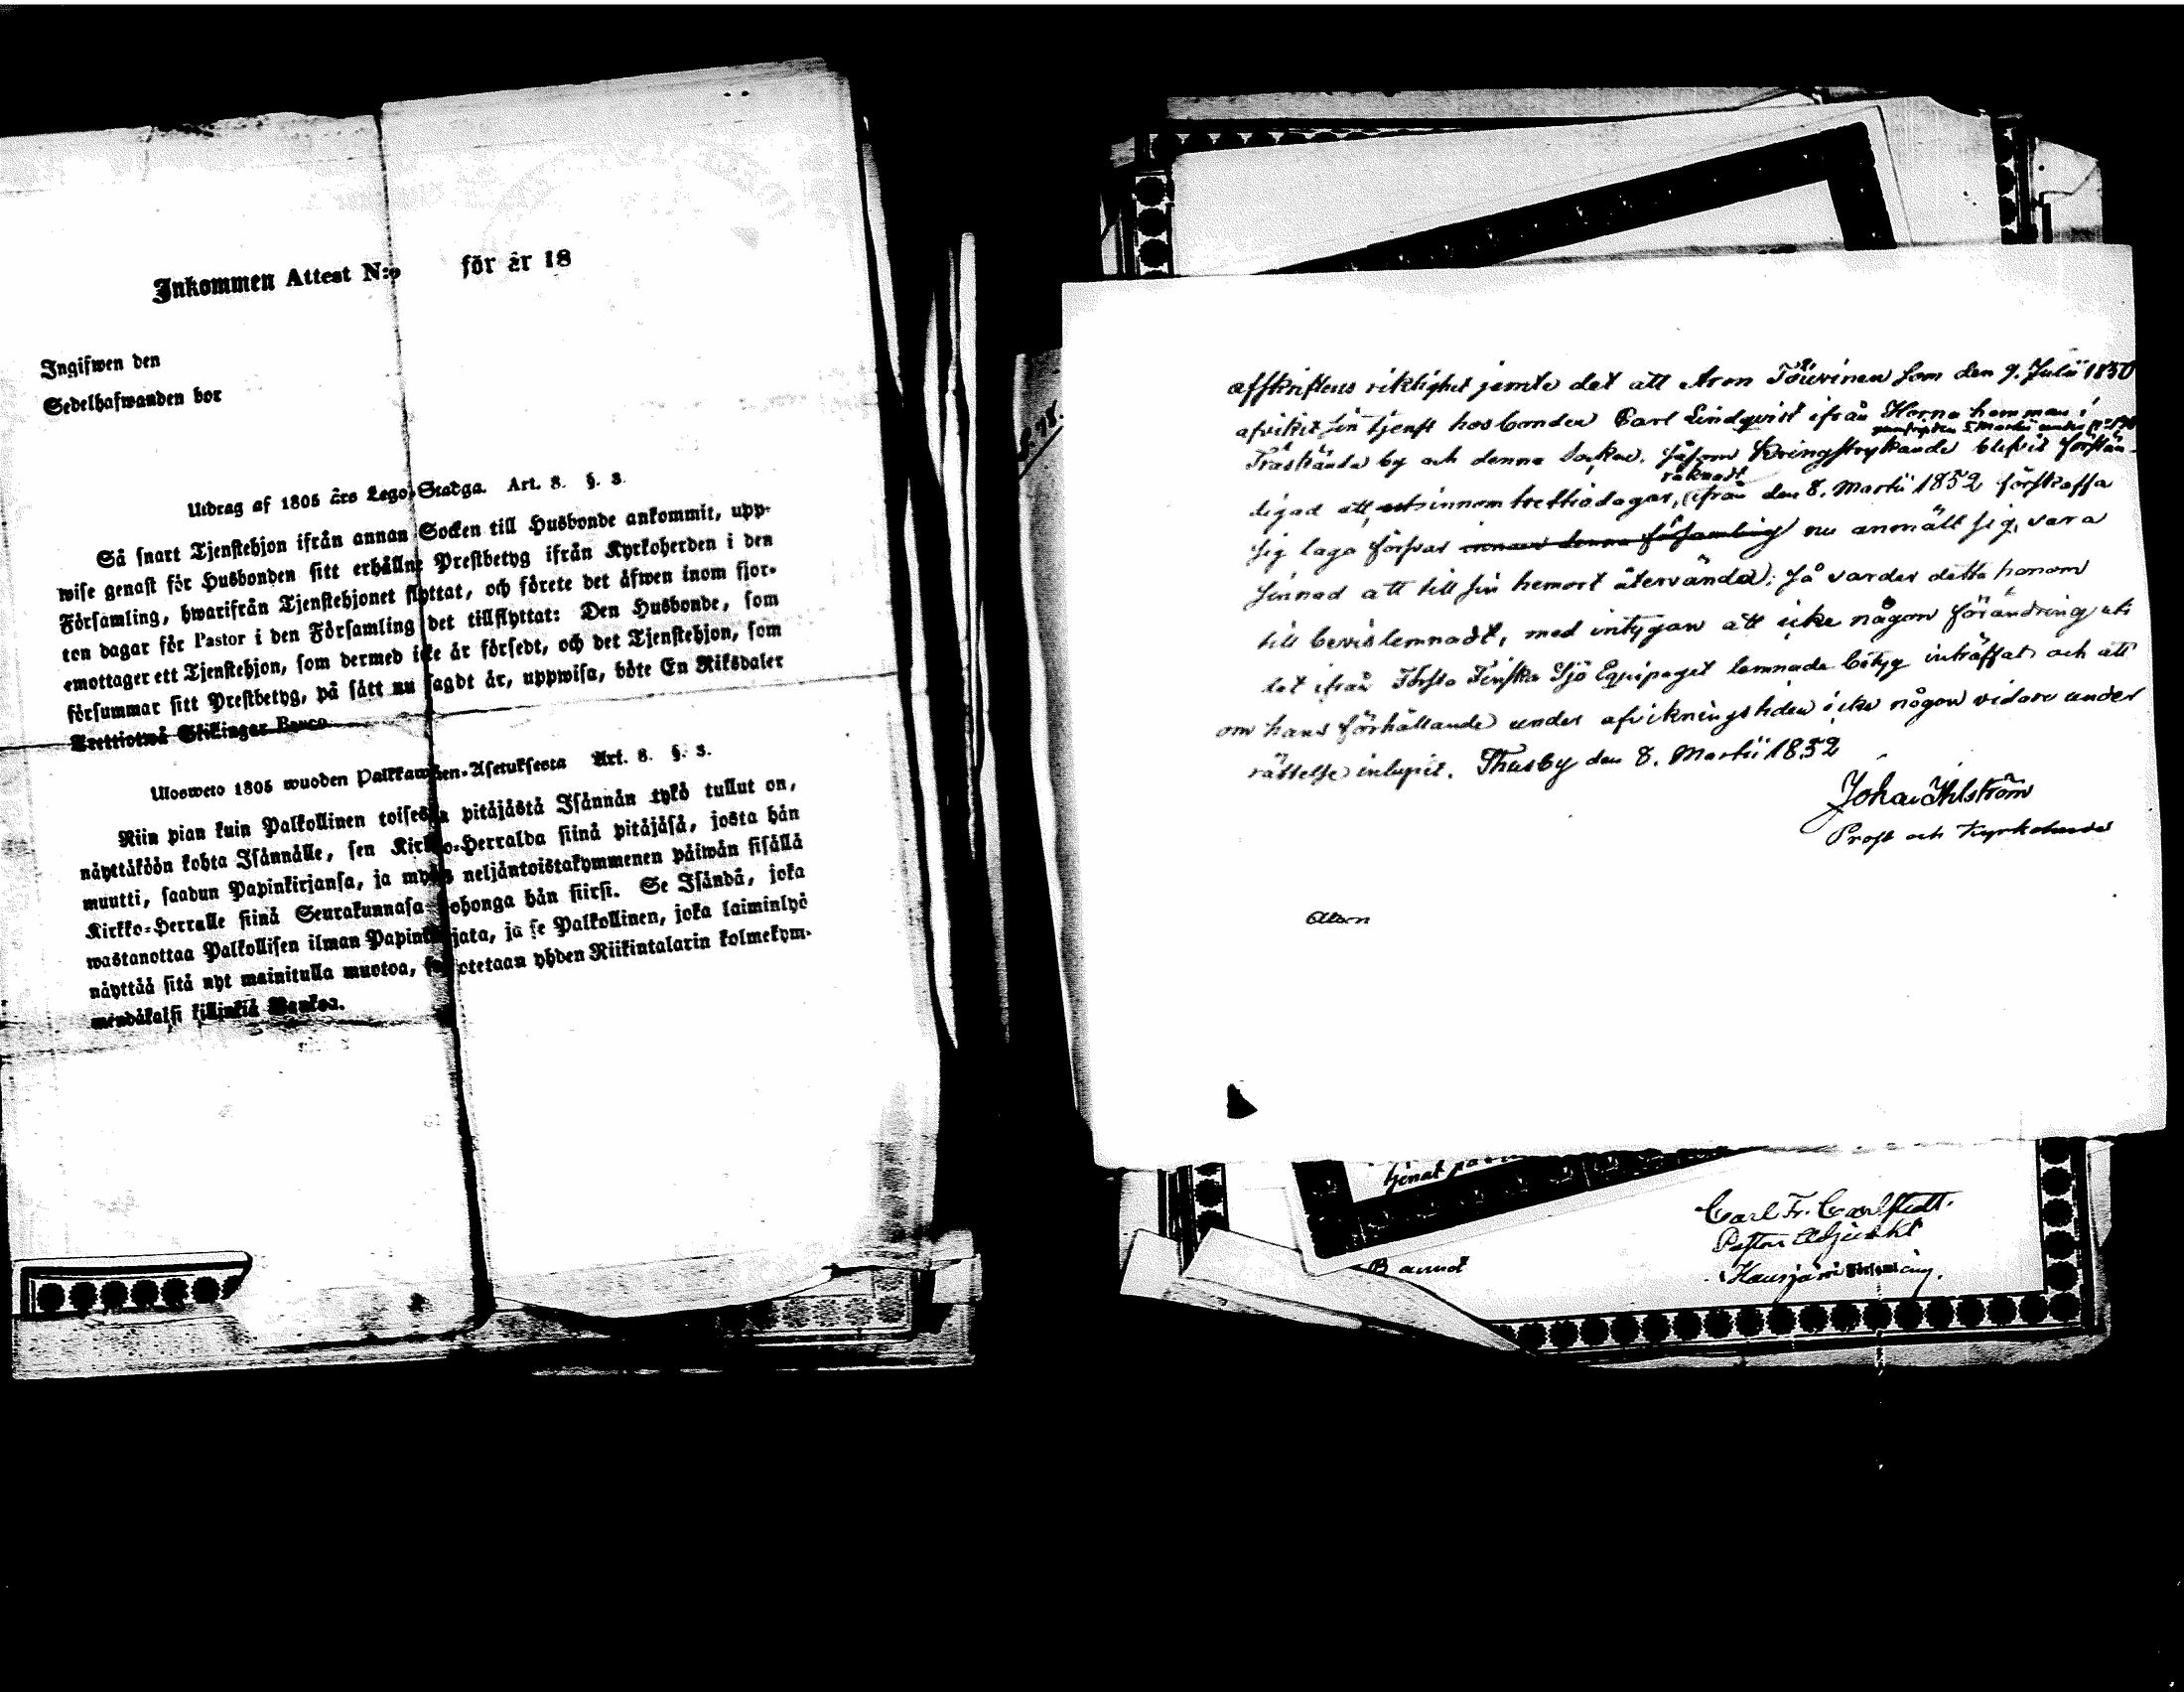 Inkommen Attest N:o för år 18
Ingifwen den
Sedelhafwanden bor
Utdrag af 1805 års Lego-Stadga. Art. 8. §. 3.
Så snart Tjenstehjon ifrån annan Socken till Husbonde ankommit, upp-
wise genast för Husbonden sitt erhållne Prestbetyg ifrån Kyrkoherden i den
Församling, hwarifrån Tjenstehjonet flyttat, och förete det äfwen inom fjor-
ton dagar för Pastor i den Församling det tillflyttat: Den Husbonde, som
emottager ett Tjenstehjon, som dermed icke är försedt, och det Tjenstehjon, som
försummar sitt Prestbetyg, på sätt nu sagdt är, uppwisa, böte En Riksdaler
Trettiotwå Skillingar Banco.
Ulosweto 1805 wuoden Palkkawäen-Asetuksesta Art. 8. §. 3.
Niin pian kuin Palkollinen toisesta pitäjästä Isännän tykö tullut on,
näyttäköön kohta Isännälle, sen Kirkko-Herralda siinä pitäjäsä, josta hän
muutti, saadun Papinkirjansa, ja myös neljäntoistakymmenen päiwän sisällä
Kirkko-Herralle siinä Seurakunnasa johonga hän siirsi. Se Isändä, joka
wastanottaa Palkollisen ilman Papinkirjata, ja se Palkollinen, joka laiminlyö
näyttää sitä nyt mainitulla muotoa, otetaan yhden Riikintalarin kolmekym-
mendäkaksi killinkiä Bankoa.
afskriftens riktighet jemte det att Aron Töivinen som den 9. Julii 1850
afvikit sin tjenst hos bonden Carl Lindqvist ifrån Horna hemman i
Träskända by och denna Socken, såsom Kringstrykande blifvit förstän-
räknadt
digad att innom trettio dagar, ifrån den 8. Martii 1852 förskaffa
sig laga försvar innom denna församling nu anmält sig, vara
sinnad att till sin hemort återvända; så varder detta honom
till bevis lemnadt, med intygan att icke någon förändring uti
det ifrån Första Finska Sjö Equipaget lemnade betyg inträffat och att
om hans förhållande under afvikningstiden icke någon vidare under
rättelse inlupit. Thusby den 8. Martii 1852
Johan Ahlström
Prost och Kyrkoherde
tjenat
Carl Fr. Carlstedt.
Pastors Adjunkt
Hausjärvi Församling.